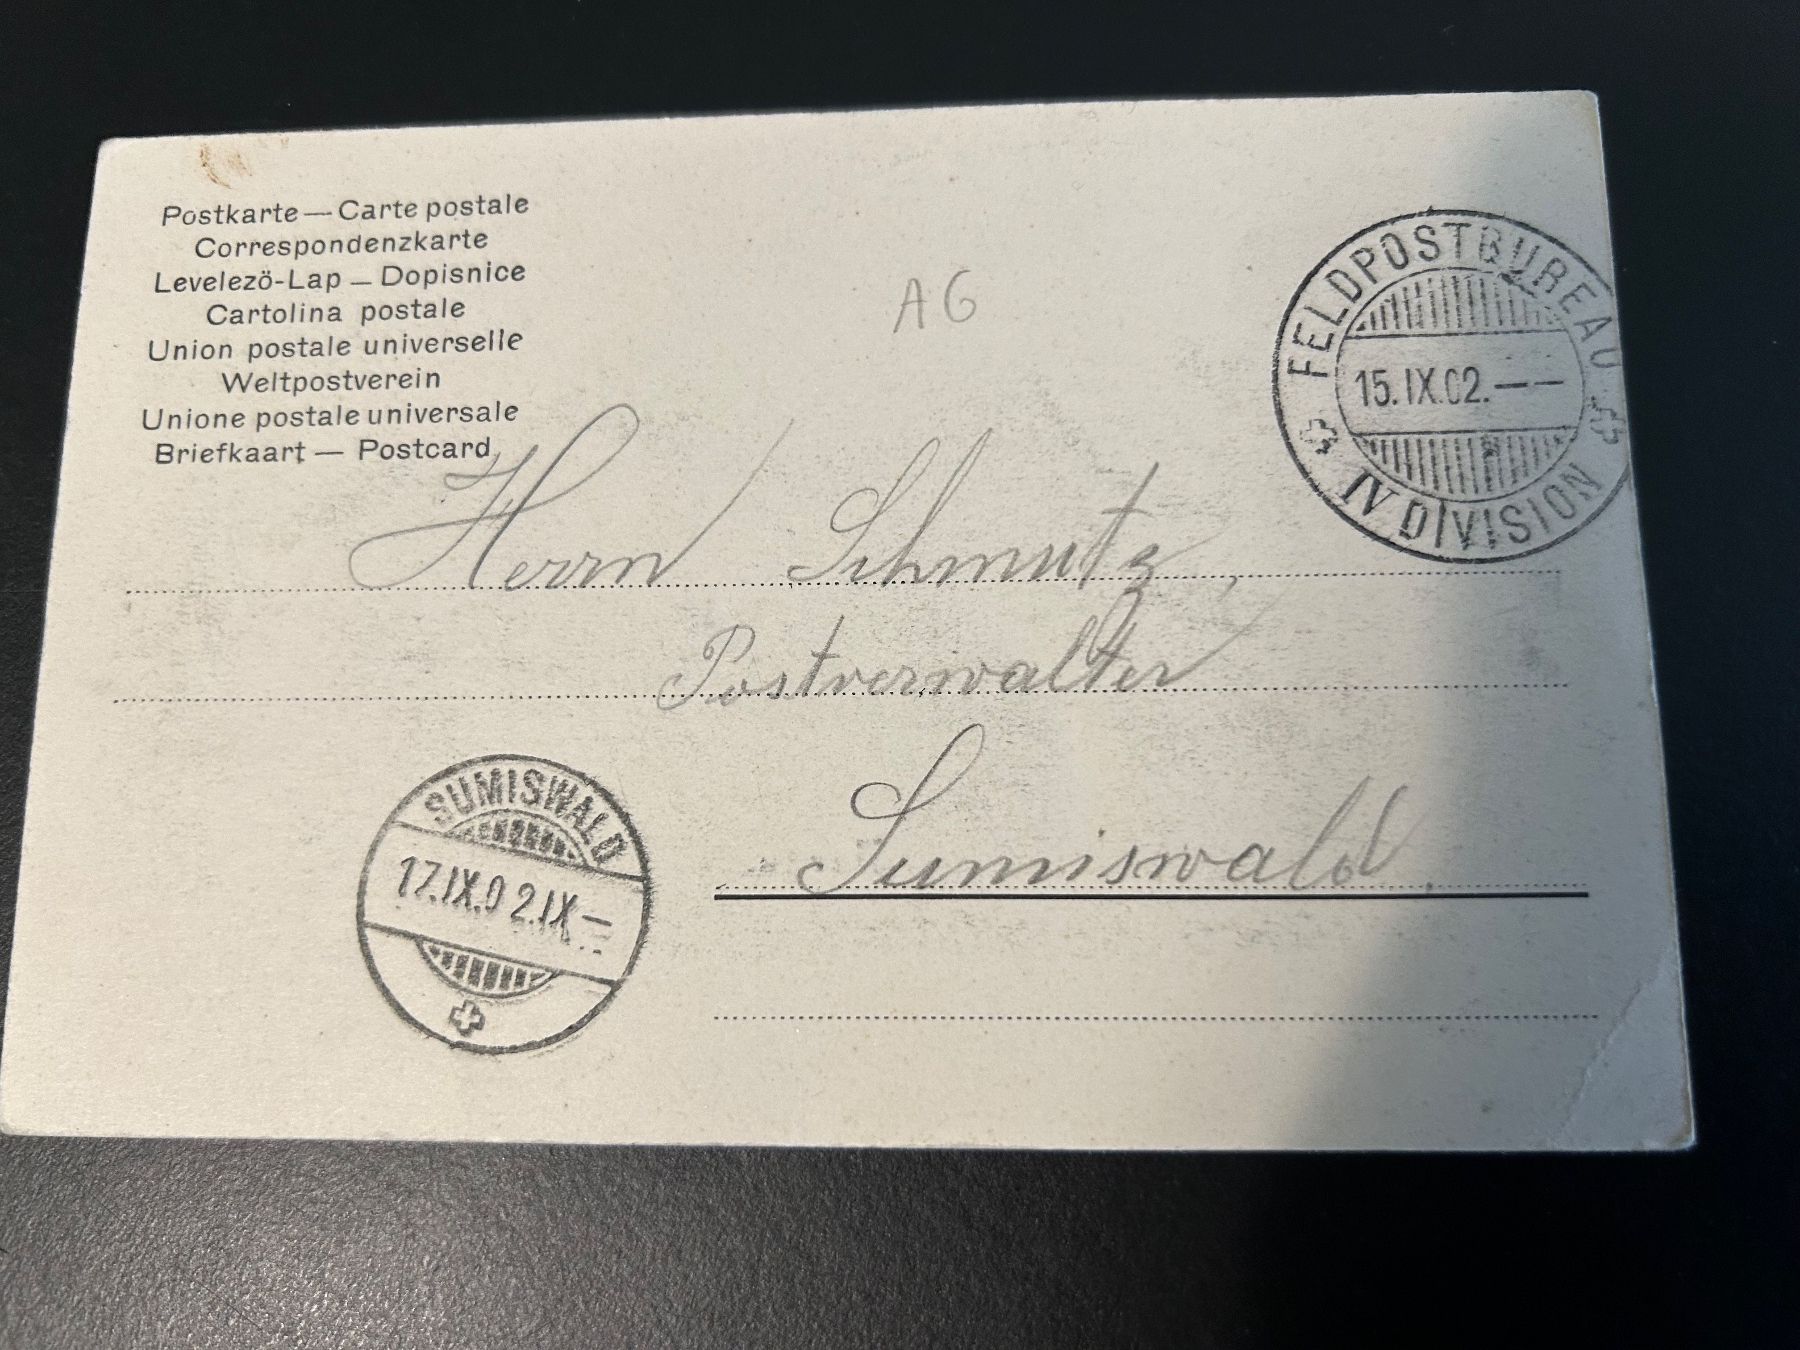 Postkarte — Carte postale
Correspondenzkarte
Levelezö-Lap — Dopisnice
Cartolina postale
Union postale universelle
Weltpostverein
Unione postale universale
Briefkaart — Postcard
AG
FELDPOSTBUREAU
15.IX.02.——
IV DIVISION
Herrn Schmutz,
Postverwalter
Sumiswald.
SUMISWALD
17.IX.02.IX—